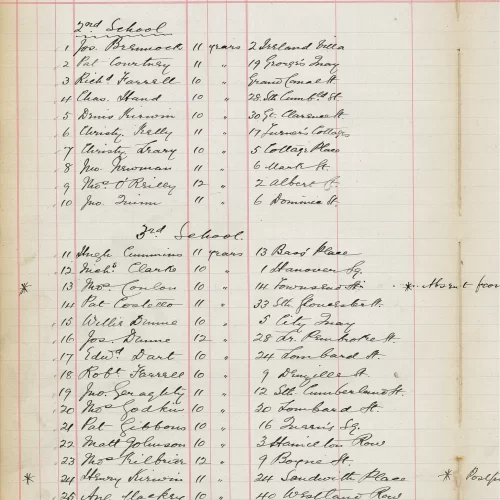 2nd School
1 Jos. Bismock 11 years 2 Ireland Villa
2 Pat Courtney 11 " 19 George's Quay
3 Richd Farrell 10 " Grand Canal St
4 Chas. Hand 10 " 28 Sth Cumbd St
5 Denis Kirwin 10 " 30 Gt. Clarence St.
6 Christy Kelly 11 " 17 Turner's Cottages
7 Christy Leary 10 " 5 Cottage Place
8 Jno Newman 11 " 6 Mark St.
9 Thos O'Reilly 12 " 2 Albert St
10 Jno. Quinn 11 " 6 Dominic St
3rd School.
11 Hugh Cummins 11 years 13 Bass Place
12 Michl Clarke 10 " 1 Hanover Sq.
* 13 Thos Conlon 10 " 14 Townsend St * Absent from
14 Pat Costello 11 " 33 Sth Gloucester St.
15 Willie Dunne 10 " 5 City Quay
16 Jos. Dunne 12 " 28 Lr. Pembroke St.
17 Edwd Dart 10 " 24 Lombard St.
18 Robt Farrell 10 " 9 Denzille St.
19 Jno. Geraghty 11 " 12 Sth Cumberland St.
20 Thos Godkin 10 " 20 Lombard St.
21 Pat Gibbons 10 " 16 Sq.
22 Matt Johnson 10 " 3 Hamilton Row
23 Thos Kilbride 12 " 9 Boyne St.
* 24 Henry Kirwin 11 " 24 Sandwith Place *
25 10 " 40 Westland Row